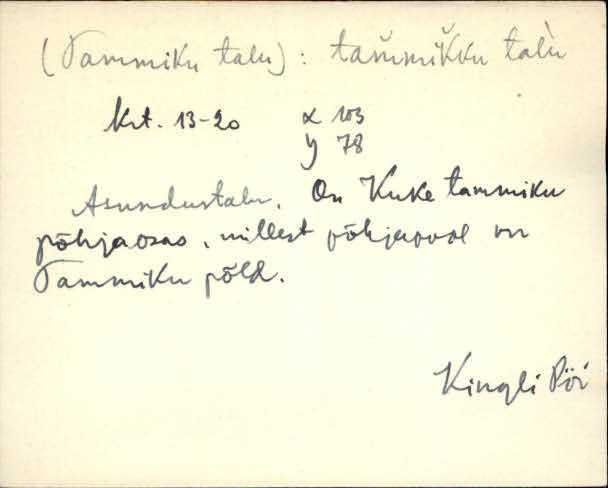 (Tammiku talu): tam̆mik̆ku talù
Krt. 13-20 x 103
y 78
Asundustalu. On Kuke tammiku
põhjaosas, millest põhjapool on
Tammiku põld.
Kingli Pöi